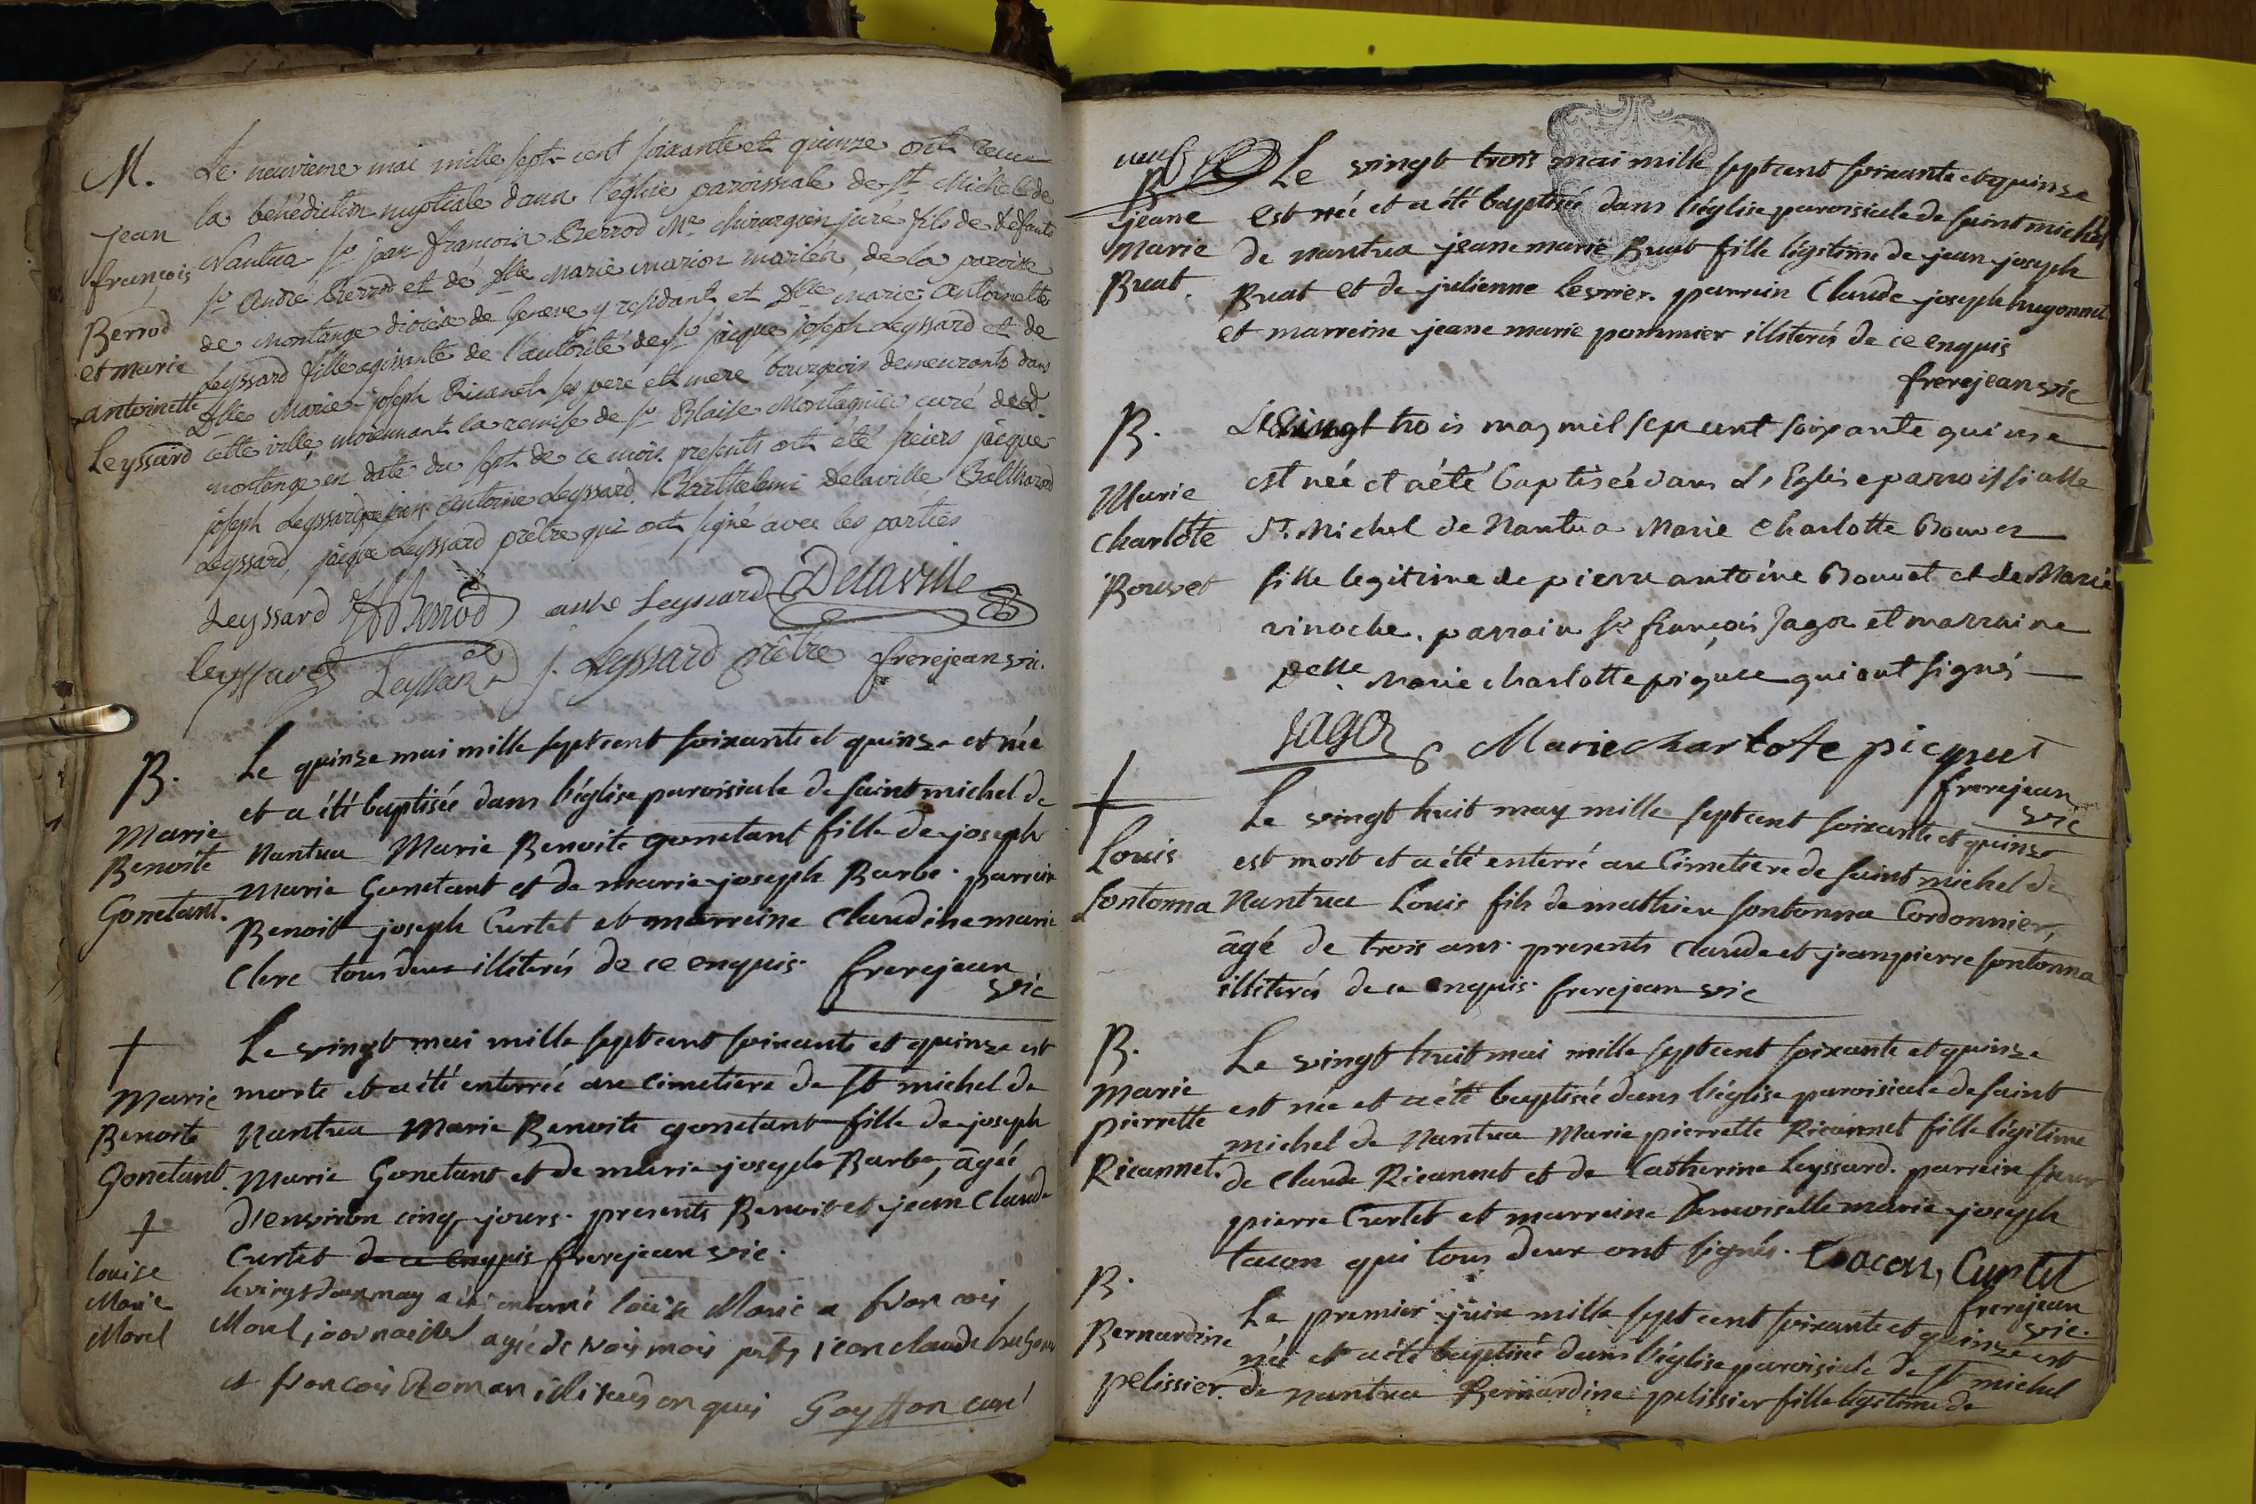 M.
Jean
françois
Berrod
et marie
antoinette
Leyssard
Le neuvieme mai mille sept cent soixante et quinze ont recu
la bénédiction nuptiale dans l'église paroissiale de St Michel de
Nantua Sr jean françois Berrod Me chirurgien juré fils de défunts
Sr André Berrod et de Dlle Marie marion mariés, de la paroisse
de Montange diocèse de Geneve y residant et Dlle marie Antoinette
Leyssard fille agissante de l'autorité de Sr jacque joseph Leyssard et de
Dlle Marie joseph Ricanet ses pere et mere bourgeois demeurants dans
cette ville, moiennant la remise de Sr Blaise Montagnier curé dud.
montange en date du sept de ce mois. presents ont été sieurs jacque
joseph Leyssard antoine Leyssard, Barthelemi Delaville Balthazard
Leyssard, jacque Leyssard prêtre qui ont signé avec les parties
Leyssard Berrod Leyssard Delaville
leyssard Leyssard j. Leyssard prêtre frerejean vic.
B.
Marie
Benoite
Gonetant.
Le quinze mai mille sept cent soixante et quinze et née
et a été baptisée dans l'église paroisiale de saint michel de
Nantua Marie Benoite gonetant fille de joseph
Marie Gonetant et de marie joseph Barbe. parrein
Benoit joseph Curtet et marreine Claudine marie
Clerc tous deux illiterés de ce enquis. frerejean
vic
+
Marie
Benoite
Gonetant.
Le vingt mai mille sept cent soixante et quinze est
morte et a été enterrée au cimetiere de St michel de
Nantua Marie Benoite gonetant fille de joseph
Marie Gonetant et de marie joseph Barbe, âgée
d'environ cinq jours. presents Benoit et jean Claude
Curtet de ce enquis frerejean vic.
+
louise
Marie
Morel
le vingt deux may a été enterré loüise Marie a francois
Morel, journaillier agée de trois mois pnts jean claude
et francois Roman illiterés enquis Goyffon curé
B
jeane
marie
Bruat.
Le vingt trois mai mille sept cent soixante et quinze
est née et a été baptisée dans l'église paroisiale de saint michel
de nantua jeane marie Bruat fille légitime de jean joseph
Bruat et de julienne Levrier. parrein Claude joseph hugonnet
et marreine jeane marie pommier illiterés de ce enquis
frerejean vic
B.
Marie
charlote
Bouvet
Le vingt trois may mil sept cent soixante quinze
est née et a été baptisée dans L'Eglise parroissialle
St. Michel de Nantua Marie Charlotte Bouvet
fille legitime de pierre antoine Bouvet et de Marie
vinoche. parrain Sr françois Jagot et marraine
Delle. Marie charlotte piquet qui ont signés
Jagot Marie charlote picquet
frerejean
vic
+
Louis
sontonna
Le vingt huit may mille sept cent soixante et quinze
est mort et a été enterré au Cimetiere de saint michel de
Nantua Louis fils de mathieu sontonna Cordonnier,
âgé de trois ans. presents Claude et jeanpierre sontonna
illiterés de ce enquis. frerejean vic
B.
marie
pierrette
Ricannet.
Le vingt huit mai mille sept cent soixante et quinze
est née et a été baptisée dans l'église paroisiale de saint
michel de Nantua Marie pierrette Ricannet fille légitime
de Claude Ricannet et de Catherine Leyssard. parrein sieur
pierre Curtet et marreine Demoiselle marie joseph
tacon qui tous deux ont signés. Tacon, Curtet
frerejean
vic.
B.
Bernardine
pelissier.
Le premier juin mille sept cent soixante et quinze est
née et a été baptisée dans l'église paroisiale de St michel
de nantua Bernardine pelissier fille légitime de